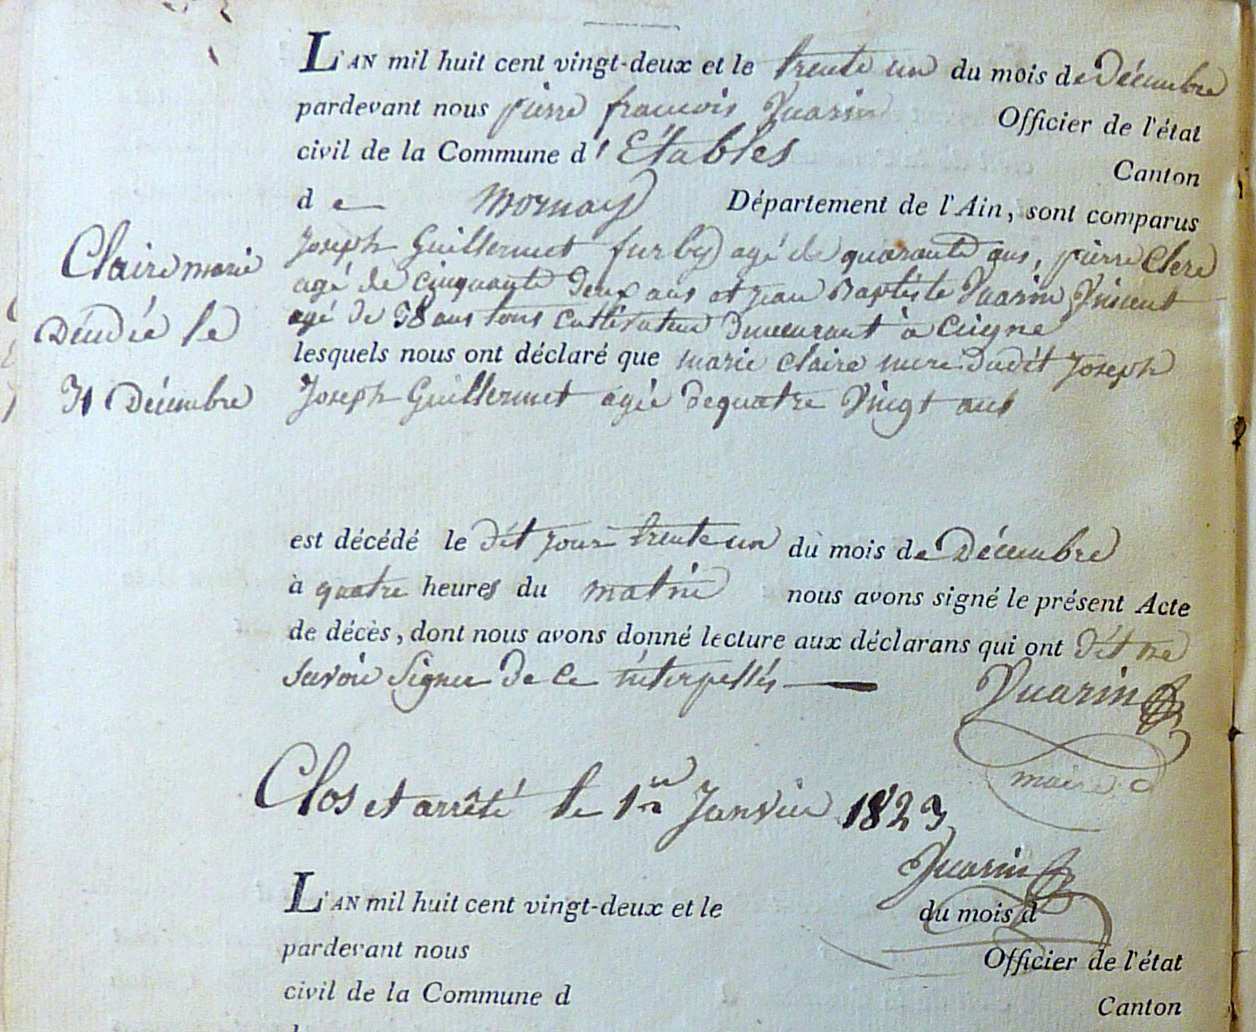 L'AN mil huit cent vingt-deux et le trente un du mois de Décembre
pardevant nous pierre francois Vuarin Officier de l'état
civil de la Commune d'Étables Canton
de Mornay Département de l'Ain, sont comparus
Joseph Guillermet furby agé de quarante ans, pierre Clerc
agé de cinquante deux ans et jean Baptiste Vuarin Vincent
agé de 38 ans tous cultivateur demeurant à Ceigne
lesquels nous ont déclaré que marie claire mere dudit Joseph
Joseph Guillermet agée de quatre Vingt ans
Claire marie
Décédée le
31 Décembre
est décédé le dit jour trente un du mois de Décembre
à quatre heures du matin nous avons signé le présent Acte
de décès, dont nous avons donné lecture aux déclarans qui ont dit ne
savoir signer de ce interpellés
Vuarin
maire
Clos et arrêté le 1er Janvier 1823
Vuarin
L'AN mil huit cent vingt-deux et le du mois d
pardevant nous Officier de l'état
civil de la Commune d Canton